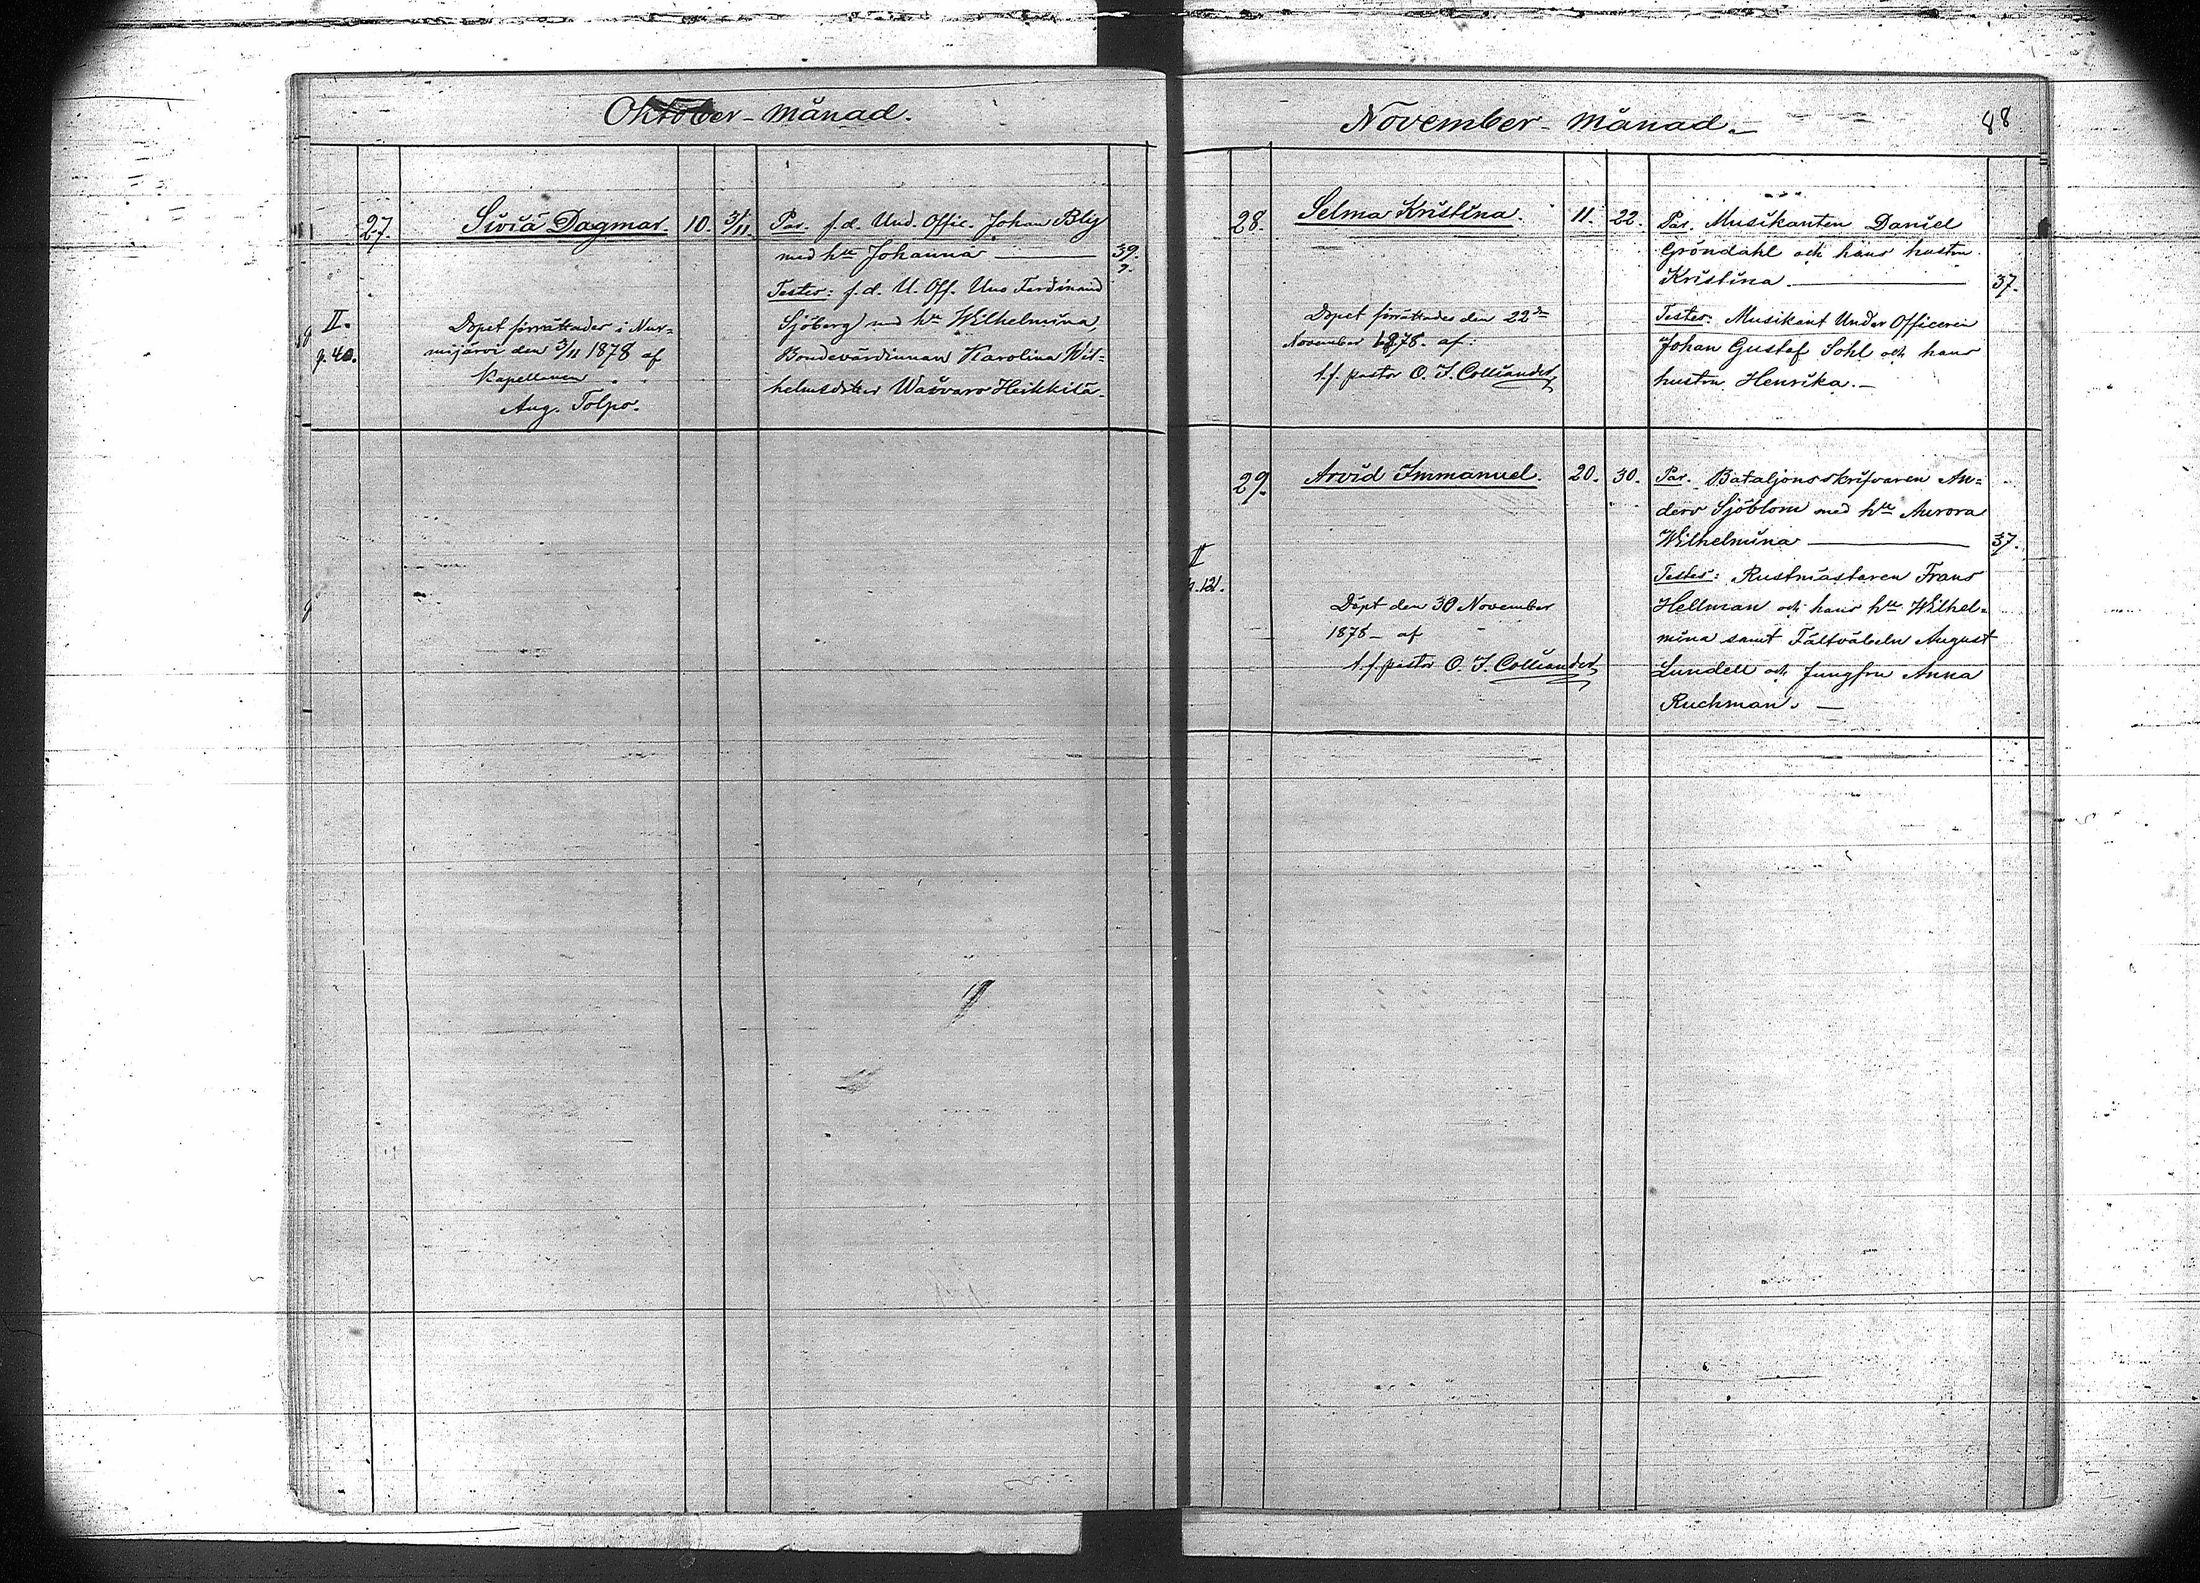 Oktober-månad.
27. Siviä Dagmar. 10. 3/11. Par. f.d. Und. Offic. Johan Bly
med hu Johanna 39.
Testes: f.d. U. Off. Uno Ferdinand
II. Dopet förrättades i Nur= Sjöberg med hu Wilhelmina,
p. 40. mijärvi den 3/11 1878 af Bondevärdinnan Karolina Wil=
Kapellanen helmsdotter Heikkilä.
Aug. Tolpo.
November-månad.
88
28. Selma Kristina. 11. 22. Par. Musikanten Daniel
Gröndahl och hans hustru
Kristina. 37.
Dopet förrättades den 22de Testes: Musikant Under Officeren
November 1878. af: Johan Gustaf Sohl och hans
t.f. pastor O. I. Colliander hustru Henrika.
29. Arvid Immanuel. 20. 30. Par. Bataljonsskrifvaren An=
ders Sjöblom med hu Aurora
Wilhelmina 37.
II Testes: Rustmästaren Frans
p. 121. Döpt den 30 November Hellman och hans hu Wilhel=
1878 af mina samt Fältväbeln August
t.f. pastor O. I. Colliander Lundell och Jungfru Anna
Ruchman.